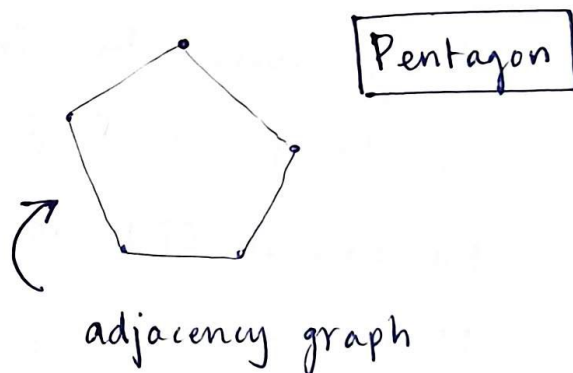 Pentagon
adjacency graph